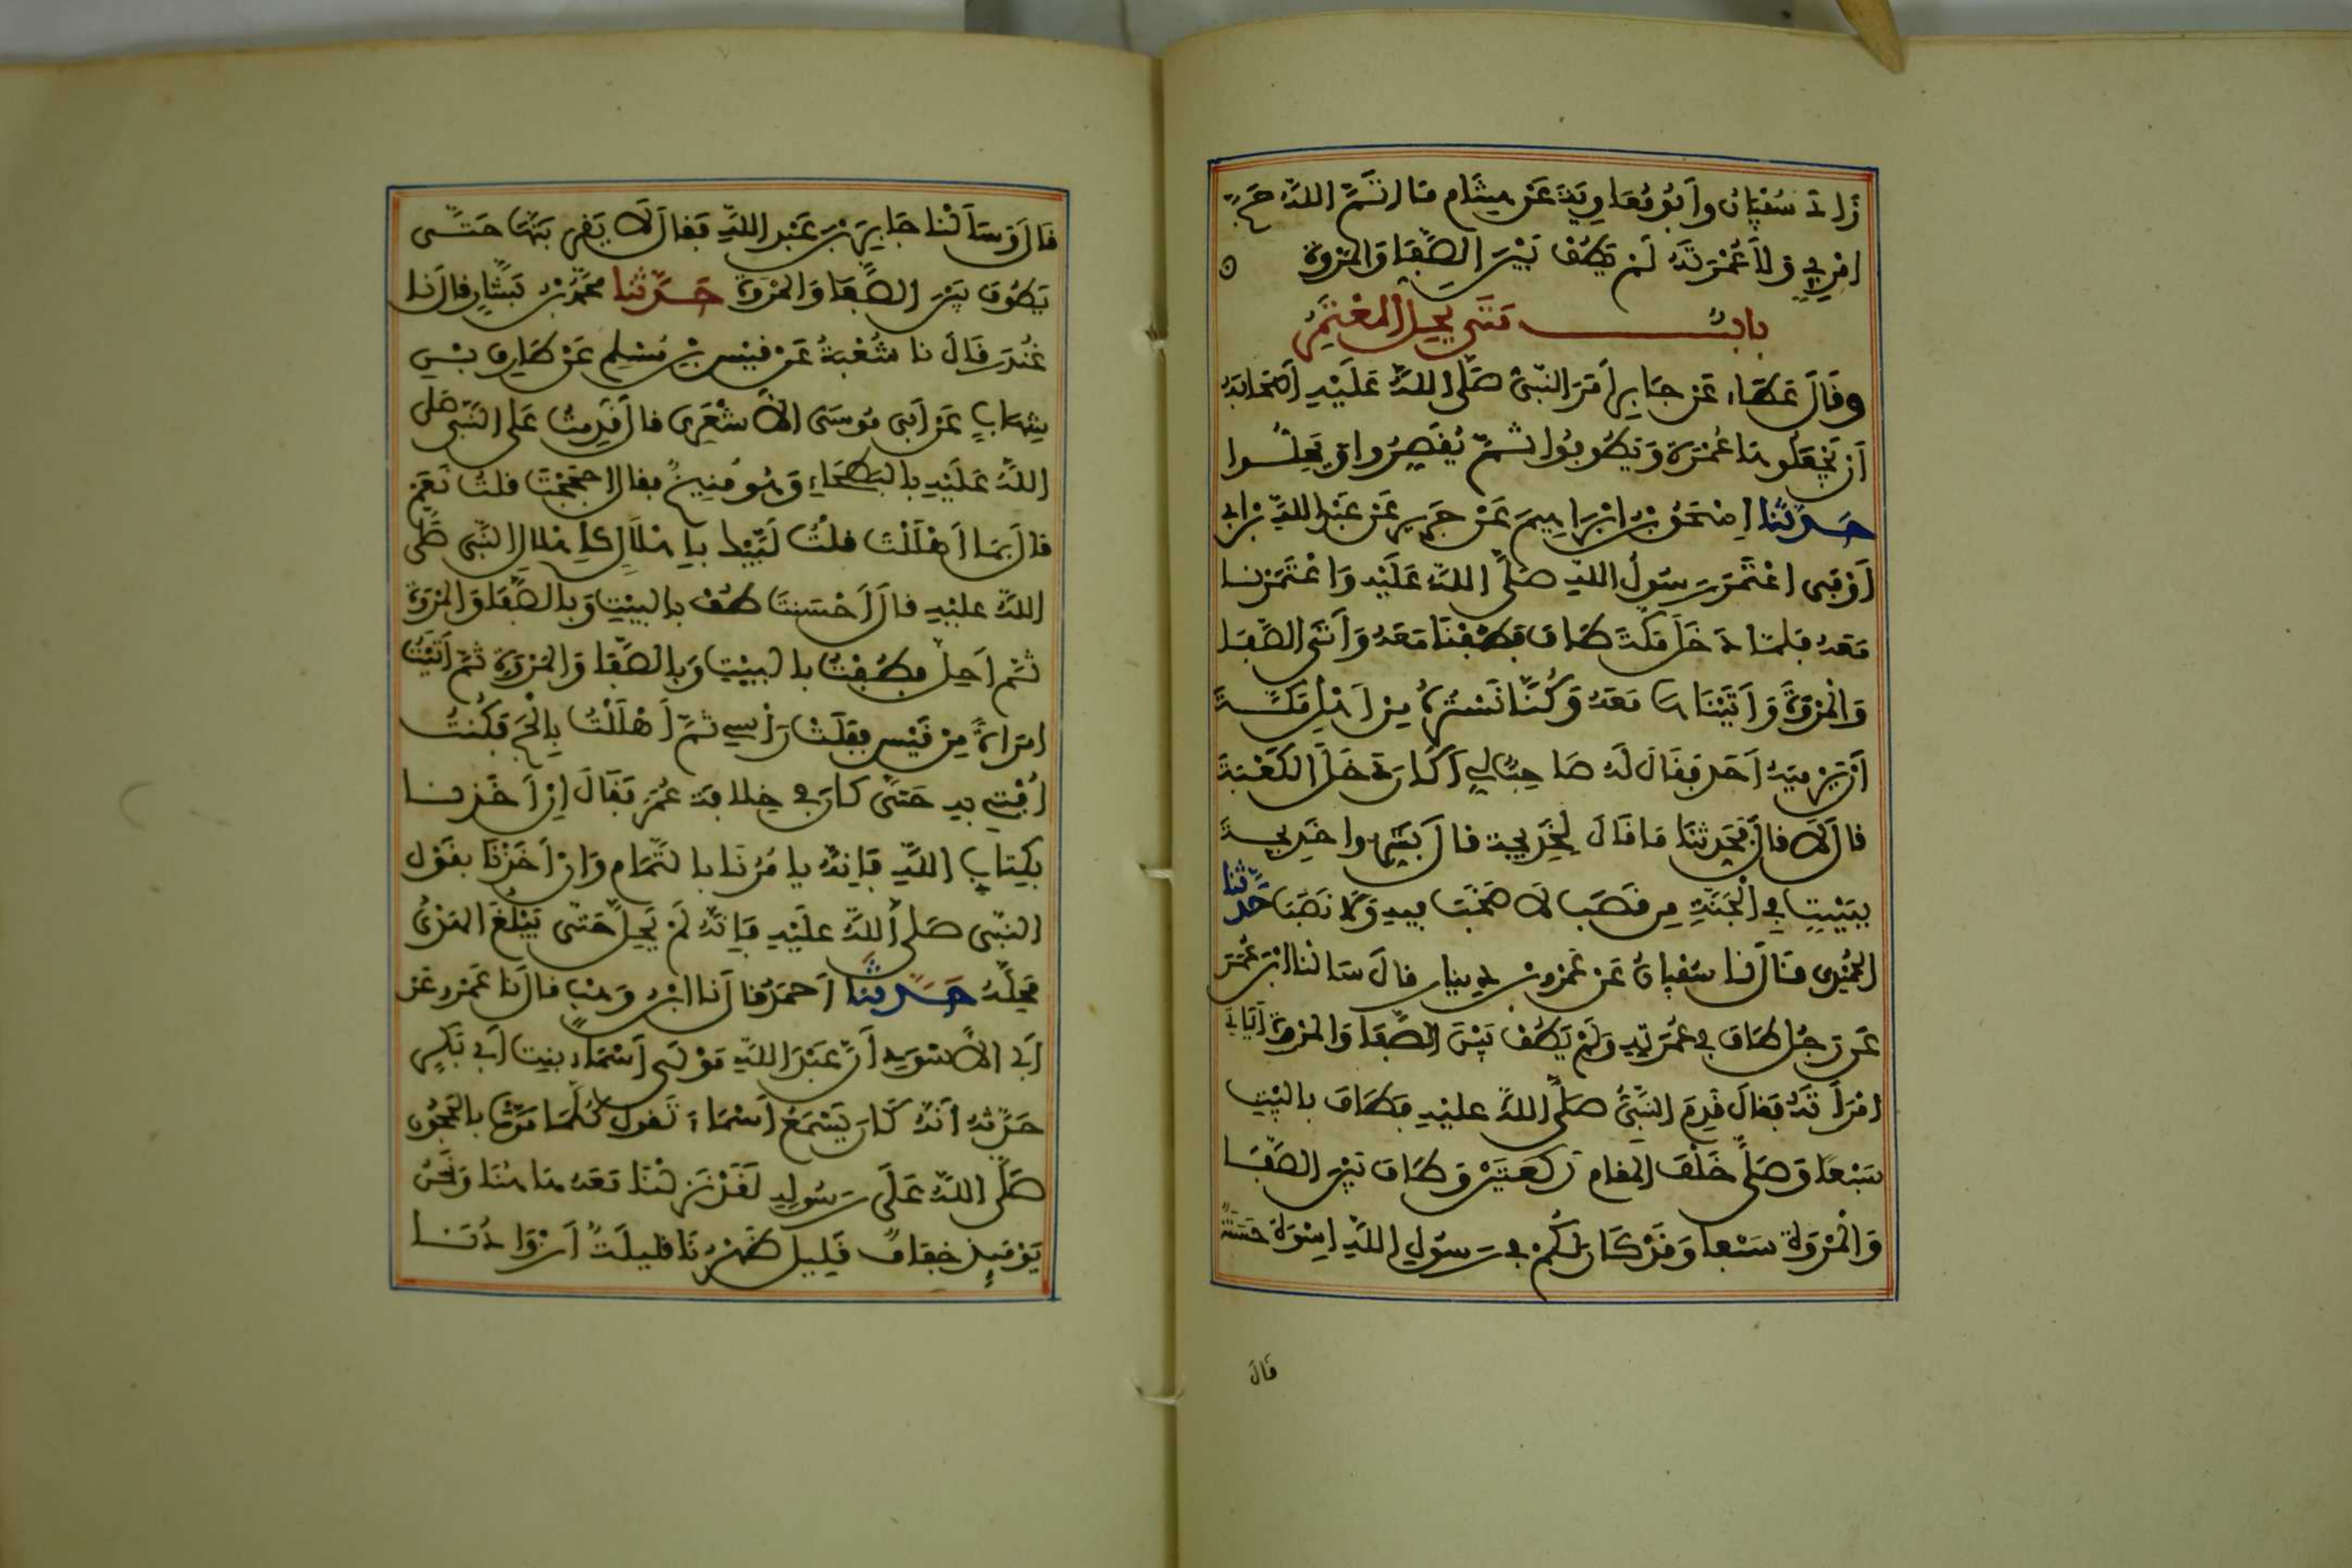 زاد سفيان وأبو معاوية عن هشام ما أتم الله حج
امرئ ولا عمرته لم يطف بين الصفا والمروة
باب متى يحل المعتمر
وقال عطاء عن جابر أمر النبي صلى الله عليه أصحابه
أن يجعلوها عمرة ويطوفوا ثم يقصروا ويحلوا
حدثنا إسحق بن إبراهيم عن جرير عن عبد الله بن أبي
أوفى اعتمر رسول الله صلى الله عليه واعتمرنا
معه فلما دخل مكة طاف فطفنا معه وأتى الصفا
والمروة وأتيناها معه وكنا نستره من أهل مكة
أن يرميه أحد فقال له صاحب لي أكان دخل الكعبة
قال لا قال فحدثنا ما قال لخديجة قال بشروا خديجة
ببيت في الجنة من قصب لا صخب فيه ولا نصب حدثنا
الحميدي قال نا سفيان عن عمرو بن دينار قال سألنا ابن عمر
عن رجل طاف في عمرته ولم يطف بين الصفا والمروة أيأتي
امرأته فقال قدم النبي صلى الله عليه فطاف بالبيت
سبعا وصلى خلف المقام ركعتين وطاف بين الصفا
والمروة سبعا وقد كان لكم في رسول الله إسوة حسنة
قال
قال وسألنا جابر بن عبد الله فقال لا يقربنها حتى
يطوف بين الصفا والمروة حدثنا محمد بن بشار قال نا
غندر قال نا شعبة عن قيس بن مسلم عن طارق بن
شهاب عن أبي موسى الأشعري قال قدمت على النبي صلى
الله عليه بالبطحاء وهو منيخ فقال احججت قلت نعم
قال بما أهللت قلت لبيك بإهلال كإهلال النبي صلى
الله عليه قال أحسنت طف بالبيت وبالصفا والمروة
ثم أحل فطفت بالبيت وبالصفا والمروة ثم أتيت
امرأة من قيس ففلت رأسي ثم أهللت بالحج فكنت
أفتي به حتى كان في خلافة عمر فقال إن أخذنا
بكتاب الله فإنه يامرنا بالتمام وإن أخذنا بقول
النبي صلى الله عليه فإنه لم يحل حتى يبلغ الهدي
محله حدثنا أحمد قال نا ابن وهب قال نا عمرو عن
أبي الأسود أن عبد الله مولى أسماء بنت أبي بكر
حدثه أنه كان يسمع أسماء تقول كلما مرت بالحجون
صلى الله على رسوله لقد نزلنا معه هاهنا ونحن
يومئذ خفاف قليل ظهرنا قليلة أزوادنا